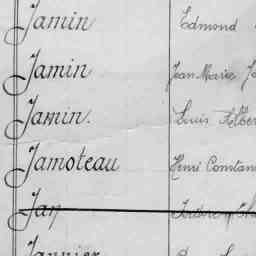 Jamin Edmond
Jamin Jean Marie
Jamin. Louis Alber
Jamoteau Henri Constan
Jan Isidore
Jannier